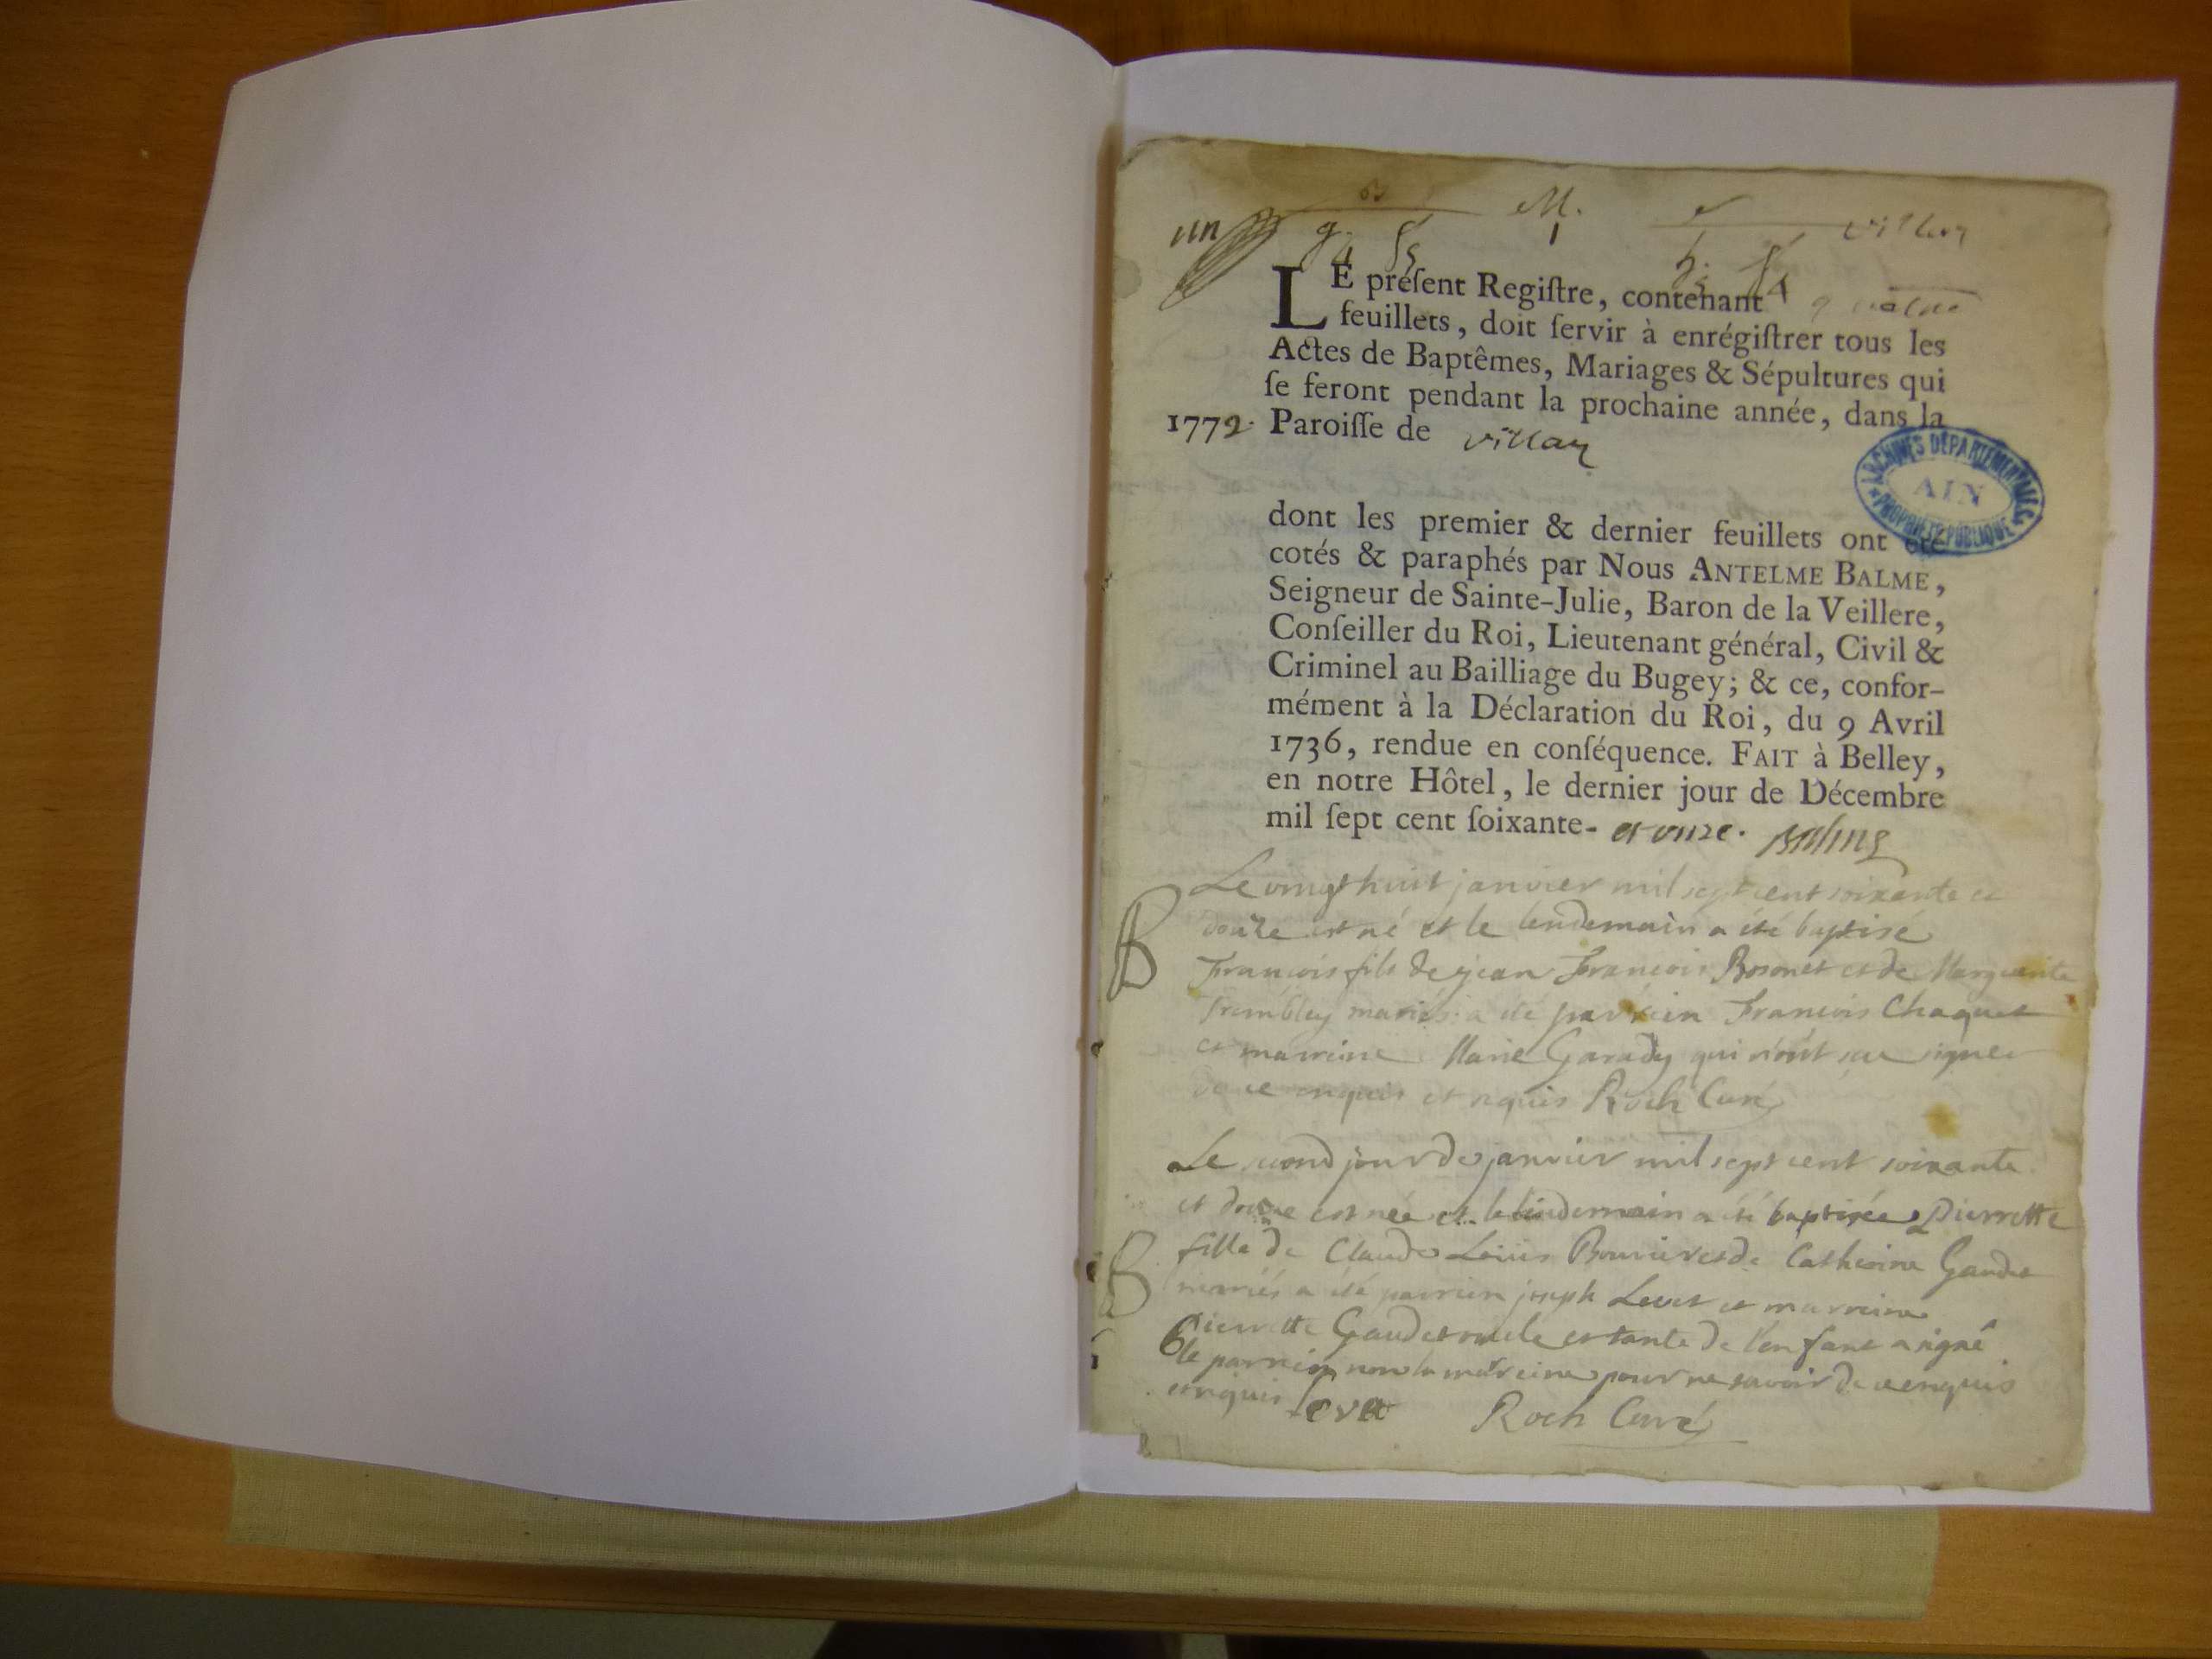 un
M.
villan
LE préſent Regiſtre, contenant quatre
feuillets, doit ſervir à enrégiſtrer tous les
Actes de Baptêmes, Mariages & Sépultures qui
ſe feront pendant la prochaine année, dans la
1772. Paroiſſe de villan
ARCHIVES DÉPARTEMENTALES
AIN
PROPRIÉTÉ PUBLIQUE
dont les premier & dernier feuillets ont été
cotés & paraphés par Nous ANTELME BALME,
Seigneur de Sainte-Julie, Baron de la Veillere,
Conſeiller du Roi, Lieutenant général, Civil &
Criminel au Bailliage du Bugey; & ce, confor-
mément à la Déclaration du Roi, du 9 Avril
1736, rendue en conſéquence. FAIT à Belley,
en notre Hôtel, le dernier jour de Décembre
mil ſept cent ſoixante- et onze. Balme
Le vingt huit janvier mil sept cent soixante et
B douze est né et le lendemain a été baptisé
François fils de jean François Bosonet et de Marguerite
Trembley mariés a été parrein François Chaquet
et marreine Marie Garady qui n'ont su signer
de ce enquis et requis Roch Curé
Le second jour de janvier mil sept cent soixante
et douze est née et le lendemain a été baptisée Pierrette
B fille de Claude Louis Bouvier et de Catherine Gaudet
mariés a été parrein joseph Levet et marreine
Pierrette Gaudet oncle et tante de l'enfant a signé
le parrein non la marreine pour ne savoir de ce enquis
et requis Levet Roch Curé